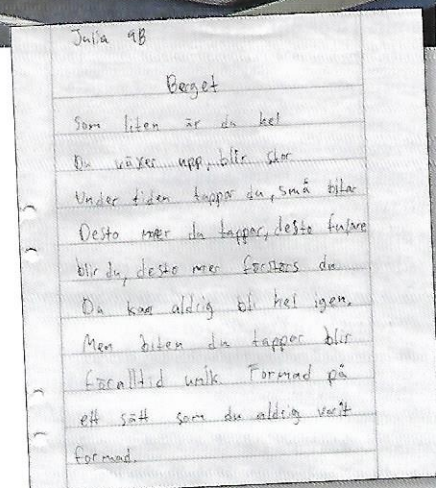 Julia 9B
Berget
Som liten är du hel
Du växer upp, blir stor
Under tiden tappar du, små bitar
Desto mer du tappar, desto fulare
blir du, desto mer förstörs du
Du kan aldrig bli hel igen.
Men biten du tappar blir
föralltid unik. Formad på
ett sätt som du aldrig varit
formad.